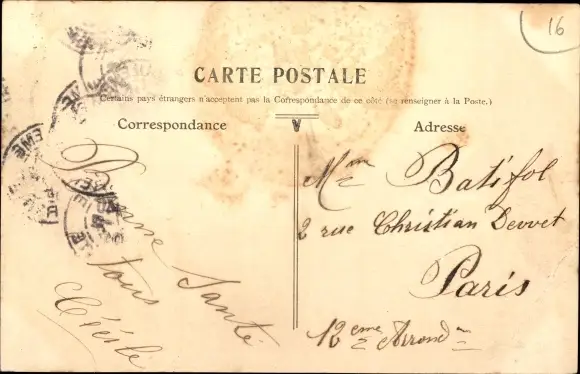 16
CARTE POSTALE
Certains pays étrangers n'acceptent pas la Correspondance de ce côté (se renseigner à la Poste.)
Correspondance
Bonne Santé
tous
Cécile
Adresse
Mme Batifol
2 rue Christian Devvet
Paris
12eme Arrond